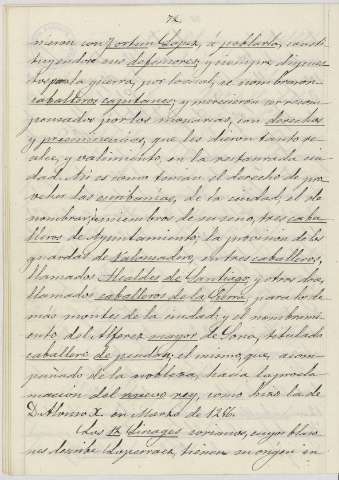 72
nieron con Fortun Lopez, á poblarla, consti
tuyendose sus defensores, y siempre dispues
tos para la guerra, por lo cual, se nombraron
caballeros capitanes; y merecieron ser recom
pensados por los monarcas, con derechos
y preeminencias, que les dieron tanto re
alce, y valimiento, en la restaurada ciu
dad. Asi es como tenian el derecho de pro
veher las escribanias, de la ciudad, el de
nombrar, miembros de su seno, tres caba
lleros de Ayuntamiento; la provision de los
guardas de Valonsadero, en tres caballeros,
llamados Alcaldes de Santiago, y otros dos,
llamados caballeros de la Sierra, para los de
más montes de la ciudad; y el nombrami
ento del Alferez mayor de Soria, titulado
caballero de pendón, el mismo, que, acom
pañado de la nobleza, hacia la procla
macion del nuevo rey, como hizo la de
D. Alonso X. en Marzo de
Los 12 Linages sorianos, cuyos blaso
nes describe Loperraez, tienen su origen en